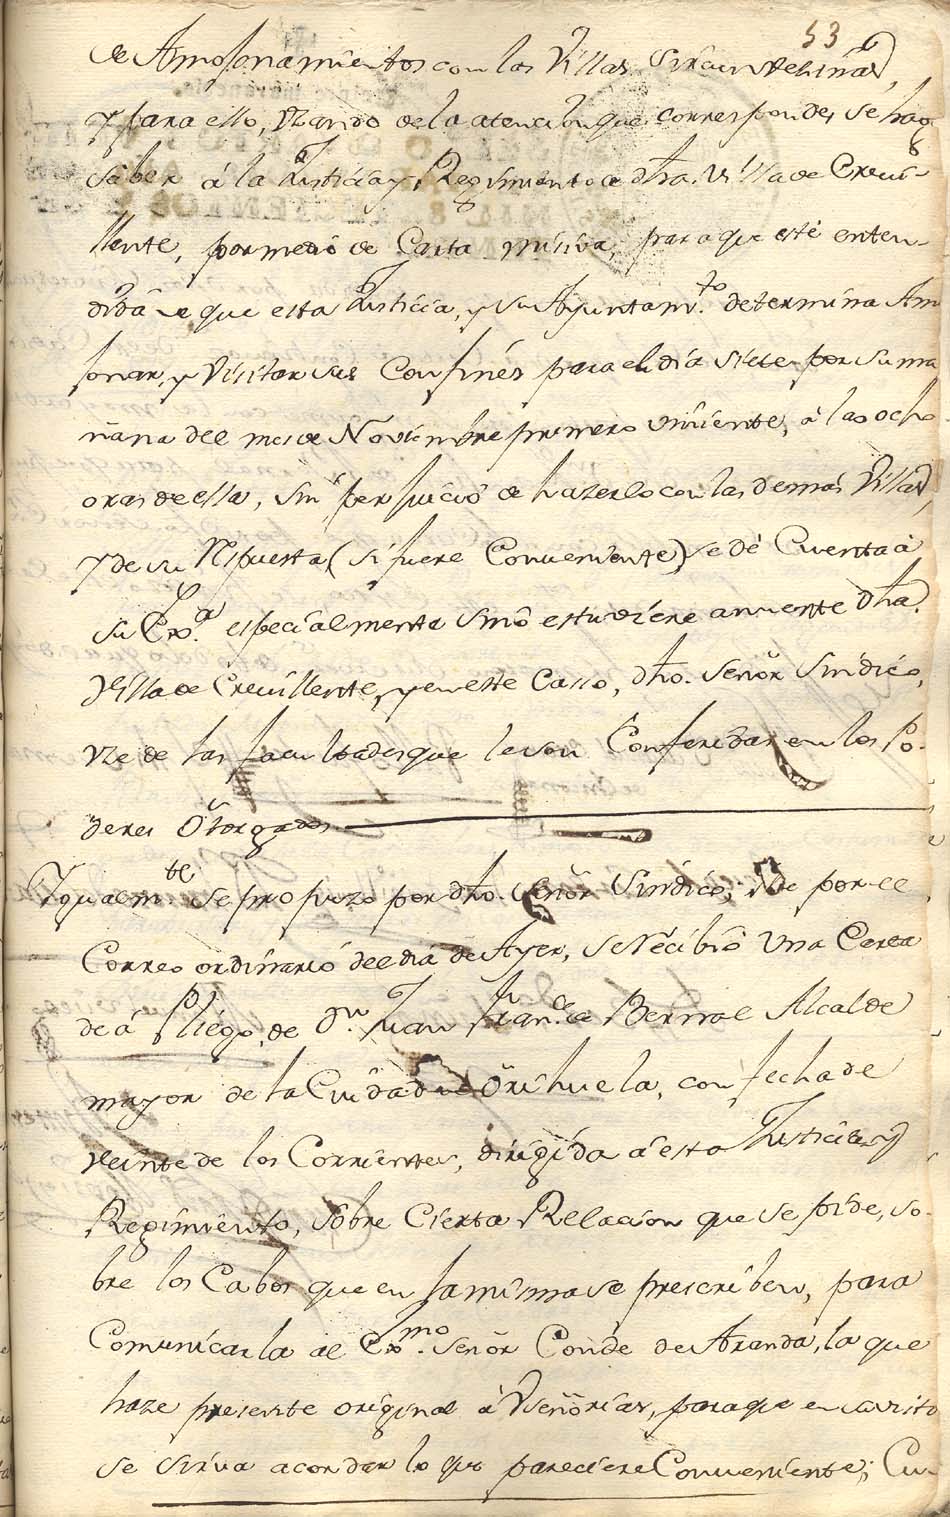 53
de Amojonamientos con las Villas Sircunvehinas,
y para ello, usando de la atencion que corresponde, se haga
saber â la Justicia y Regimiento de dha. Villa de Crevi-
llente, por medio de Carta misiva, para que esté enten-
dida de que esta Justicia, y su Ayuntam.to determina Amo
jonar, y Visitar sus Confines para el dia siete por su ma
ñana del mes de Noviembre primero viniente, â las ocho
oras de ella, sin perjuicio de hazerlo con las demas Villas,
y de su Respuesta (si fuere Conveniente) se dé Cuenta â
su Exª. especialmente sino estuviere anuente dha.
Villa de Crevillente, y en este Casso, dho. Señor Sindico,
vze de las facultades que le son Conferidas en los Po-
deres Otorgados
Igualm.te se propuzo por dho. Señor Sindico; Que por el
Correo ordinario del dia de Ayer, se recibiô Una Carta
de â Pliego, de Dn Juan Fran.co de Bernal Alcalde
mayor de la Ciudad de Orihuela, con fecha de
veinte de los Corrientes, dirigida â esta Justicia y
Regimiento, sobre Cierta Relacion que se pide, so-
bre los Cabos que en la misma se prescriben, para
Comunicarla al Ex.mo Señor Conde de Aranda, la que
haze presente original â Vseñorias, para que en su vista
se sirva acordar lo que pareciere Conveniente; Cu-